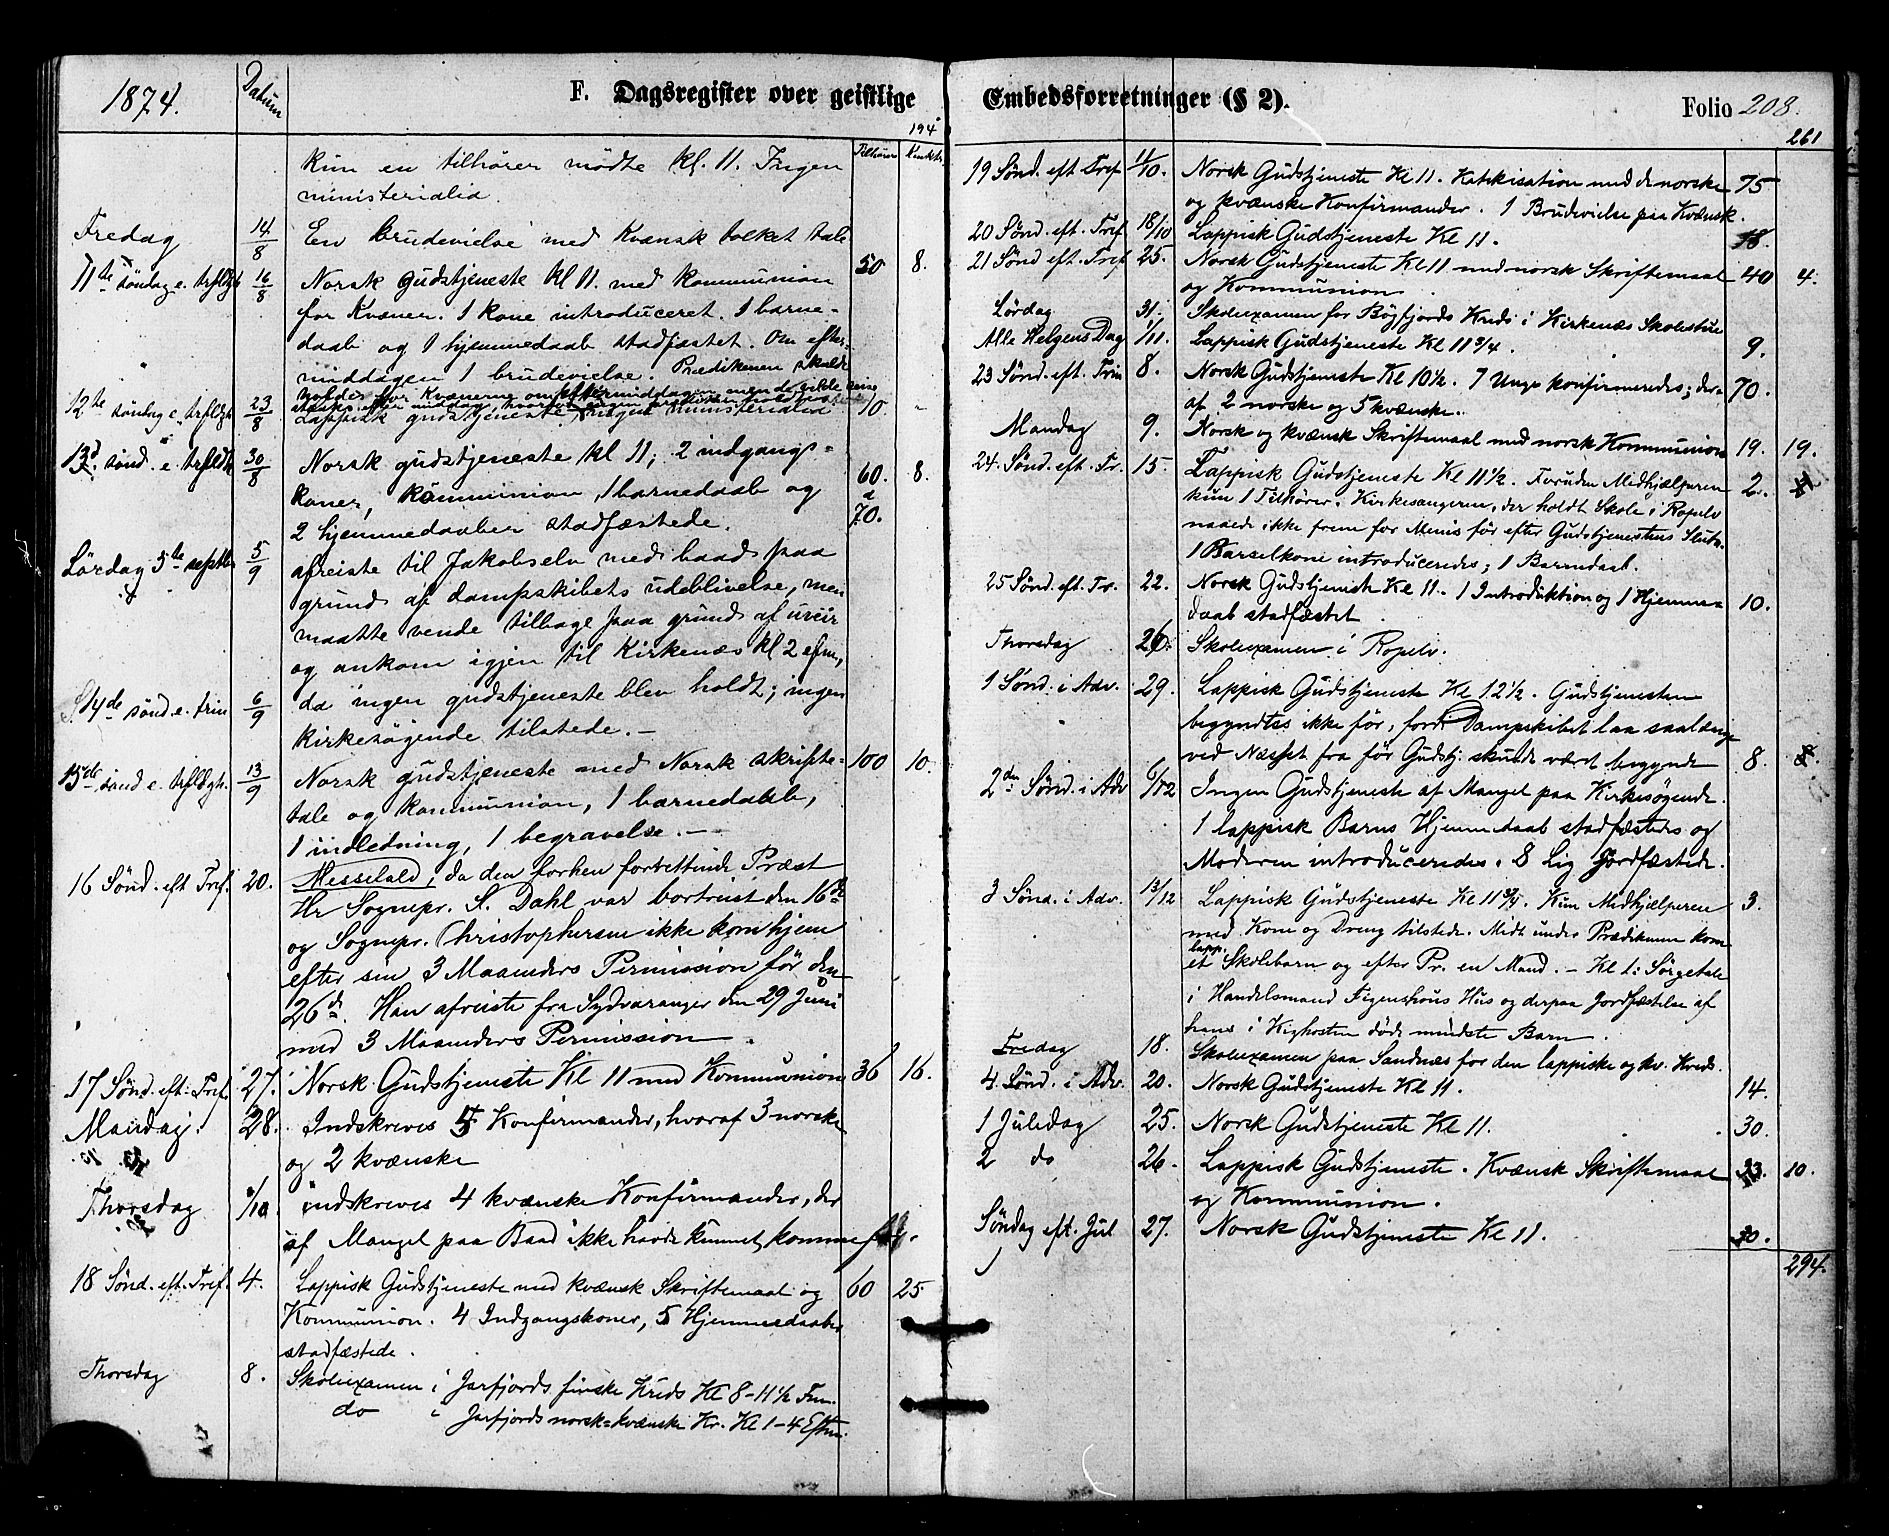 1874.
Datum
F. Dagsregister over geistlige
194
Tilhørere
kun en tilhører mødte kl. 11. Ingen
ministerialia.
Fredag 14/8 En brudevielse med Kvænsk tolket tale
11te søndag e. trfldgh 16/8 Norsk gudstjeneste kl 11. med kommunion 50 8.
for Kvæner. 1 kone introduceret. 1 barne-
daab og 1 hjemmedaab stadfæstet. Om efter-
middagen 1 brudevielse. Prædikenen skulde
holdes for Kvænerne om eftermiddagen men de vilde
12te søndag e. trfldgh 23/8 Lappisk gudstjeneste. Ingen ministerialia 10. -
13d. sønd. e. trfldh 30/8 Norsk gudstjeneste kl 11; 2 indgangs-
koner, kommunion, 1 barnedaab og 60. a 70. 8.
2 hjemmedaaber stadfæstede.
Lördag 5te septbr 5/9 afreiste til Jakobselv med baad paa
grund af dampskibets udeblivelse, men
maatte vende tilbage paa grund af uveir
og ankom igjen til Kirkenæs kl 2 efm,
14de sønd. e. trin 6/9 da ingen gudstjeneste blev holdt; ingen
kirkesøgende tilstede. -
15de sønd e. trfldgh. 13/9 Norsk gudstjeneste med Norsk skrifte- 100 10.
tale og kommunion, 1 barnedaab,
1 indledning, 1 begravelse. -
16 Sønd. eft Tref. 20. Messefald, da den forhen forrettende Præst
Hr Sognepr. S. Dahl var bortreist den 16de
og Sognepr. Christophersen ikke kom hjem
efter sin 3 Maaneders Permission før den
26d. Han afreiste fra Sydvaranger den 29 Juni
med 3 Maaneders Permission.
17 Sønd. eft. Tref. 27. Norsk Gudstjeneste Kl 11 med Kommunion 36 16.
Mandag 28. Indskrevs 5 Konfirmander, hvoraf 3 norske
og 2 kvænske
Thorsdag 1/10 indskrevs 4 kvænske Konfirmander, der
af Mangel paa Baad ikke havde kunnet komme før
18 Sønd. eft. Tref. 4. Lappisk Gudstjeneste med kvænsk Skriftemaal og 60 25.
Kommunion. 4 Indgangskoner, 5 Hjemmedaaber
stadfæstede.
Thorsdag 8. Skoleexamen i Jarfjords finske Kreds Kl 8-11½ Fm.
do i Jarfjords norsk-kvænske Kr. Kl 1-4 Eftm.
Embedsforretninger (§ 2).
Folio 208.
261
19 Sønd. eft Tref 11/10. Norsk Gudstjeneste Kl 11. Katekisation med de norske 75
og kvænske Konfirmander. 1 Brudevielse paa Kvænsk.
20 Sønd. eft. Tref. 18/10 Lappisk Gudstjeneste Kl 11. 18.
21 Sønd eft. Tref 25. Norsk Gudstjeneste Kl 11 med norsk Skriftemaal 40 4.
og Kommunion.
Lørdag 31. Skoleexamen for Bögfjords Kreds i Kirkenæs Skolestue
Alle Helgens Dag 1/11. Lappisk Gudstjeneste Kl 11 3/4. 9.
23 Sønd. eft. Trin 8. Norsk Gudstjeneste Kl 10½. 7 Unge konfirmeredes; der- 70.
af 2 norske og 5 kvænske.
Mandag 9. Norsk og kvænsk Skriftemaal med norsk Kommunion 19. 19.
24. Sønd. eft. Tr. 15. Lappisk Gudstjeneste Kl 11½. Foruden Medhjælperen 2.
kun 1 Tilhører. Kirkesangeren, der holdt Skole i Ropelv
naaede ikke frem for Menis før efter Gudstjenestens Slutn.
1 Barselkone introduceredes; 1 Barnedaab.
25 Sønd. eft. Tr. 22. Norsk Gudstjeneste Kl 11. 1 Introduktion og 1 Hjemme- 10.
daab stadfæstet.
Thorsdag 26. Skoleexamen i Ropelv.
1 Sønd. i Adv. 29. Lappisk Gudstjeneste Kl 12½. Gudstjenesten
begyndtes ikke før, fordi Dampskibet laa saalænge
ved Næsset fra før Gudstj. skulde været begyndt 8.
2den Sønd. i Adv 6/12 Ingen Gudstjeneste af Mangel paa Kirkesøgende.
1 lappisk Barns Hjemmedaab stadfæstedes og
Moderen introduceredes. 8 Lig Jordfæstede.
3 Sønd. i Adv. 13/12 Lappisk Gudstjeneste Kl 11 3/4. Kun Medhjælperen 3.
med Kone og Dreng tilstede. Midt under Prædikenen kom
et lapp. Skolebarn og efter Pr. en Mand. - Kl 1: Sørgetale
i Handelsmand Figenschous Hus og derpaa Jordfæstelse af
hans i Kighosten døde mindste Barn.
Fredag 18. Skoleexamen paa Sandnæs for den lappiske og kv. Kreds.
4. Sønd. i Adv. 20. Norsk Gudstjeneste Kl 11. 14.
1 Juledag 25. Norsk Gudstjeneste Kl 11. 30.
2 do 26. Lappisk Gudstjeneste. Kvænsk Skriftemaal 23. 10.
og Kommunion.
Søndag eft. Jul 27. Norsk Gudstjeneste Kl 11. 20.
294.